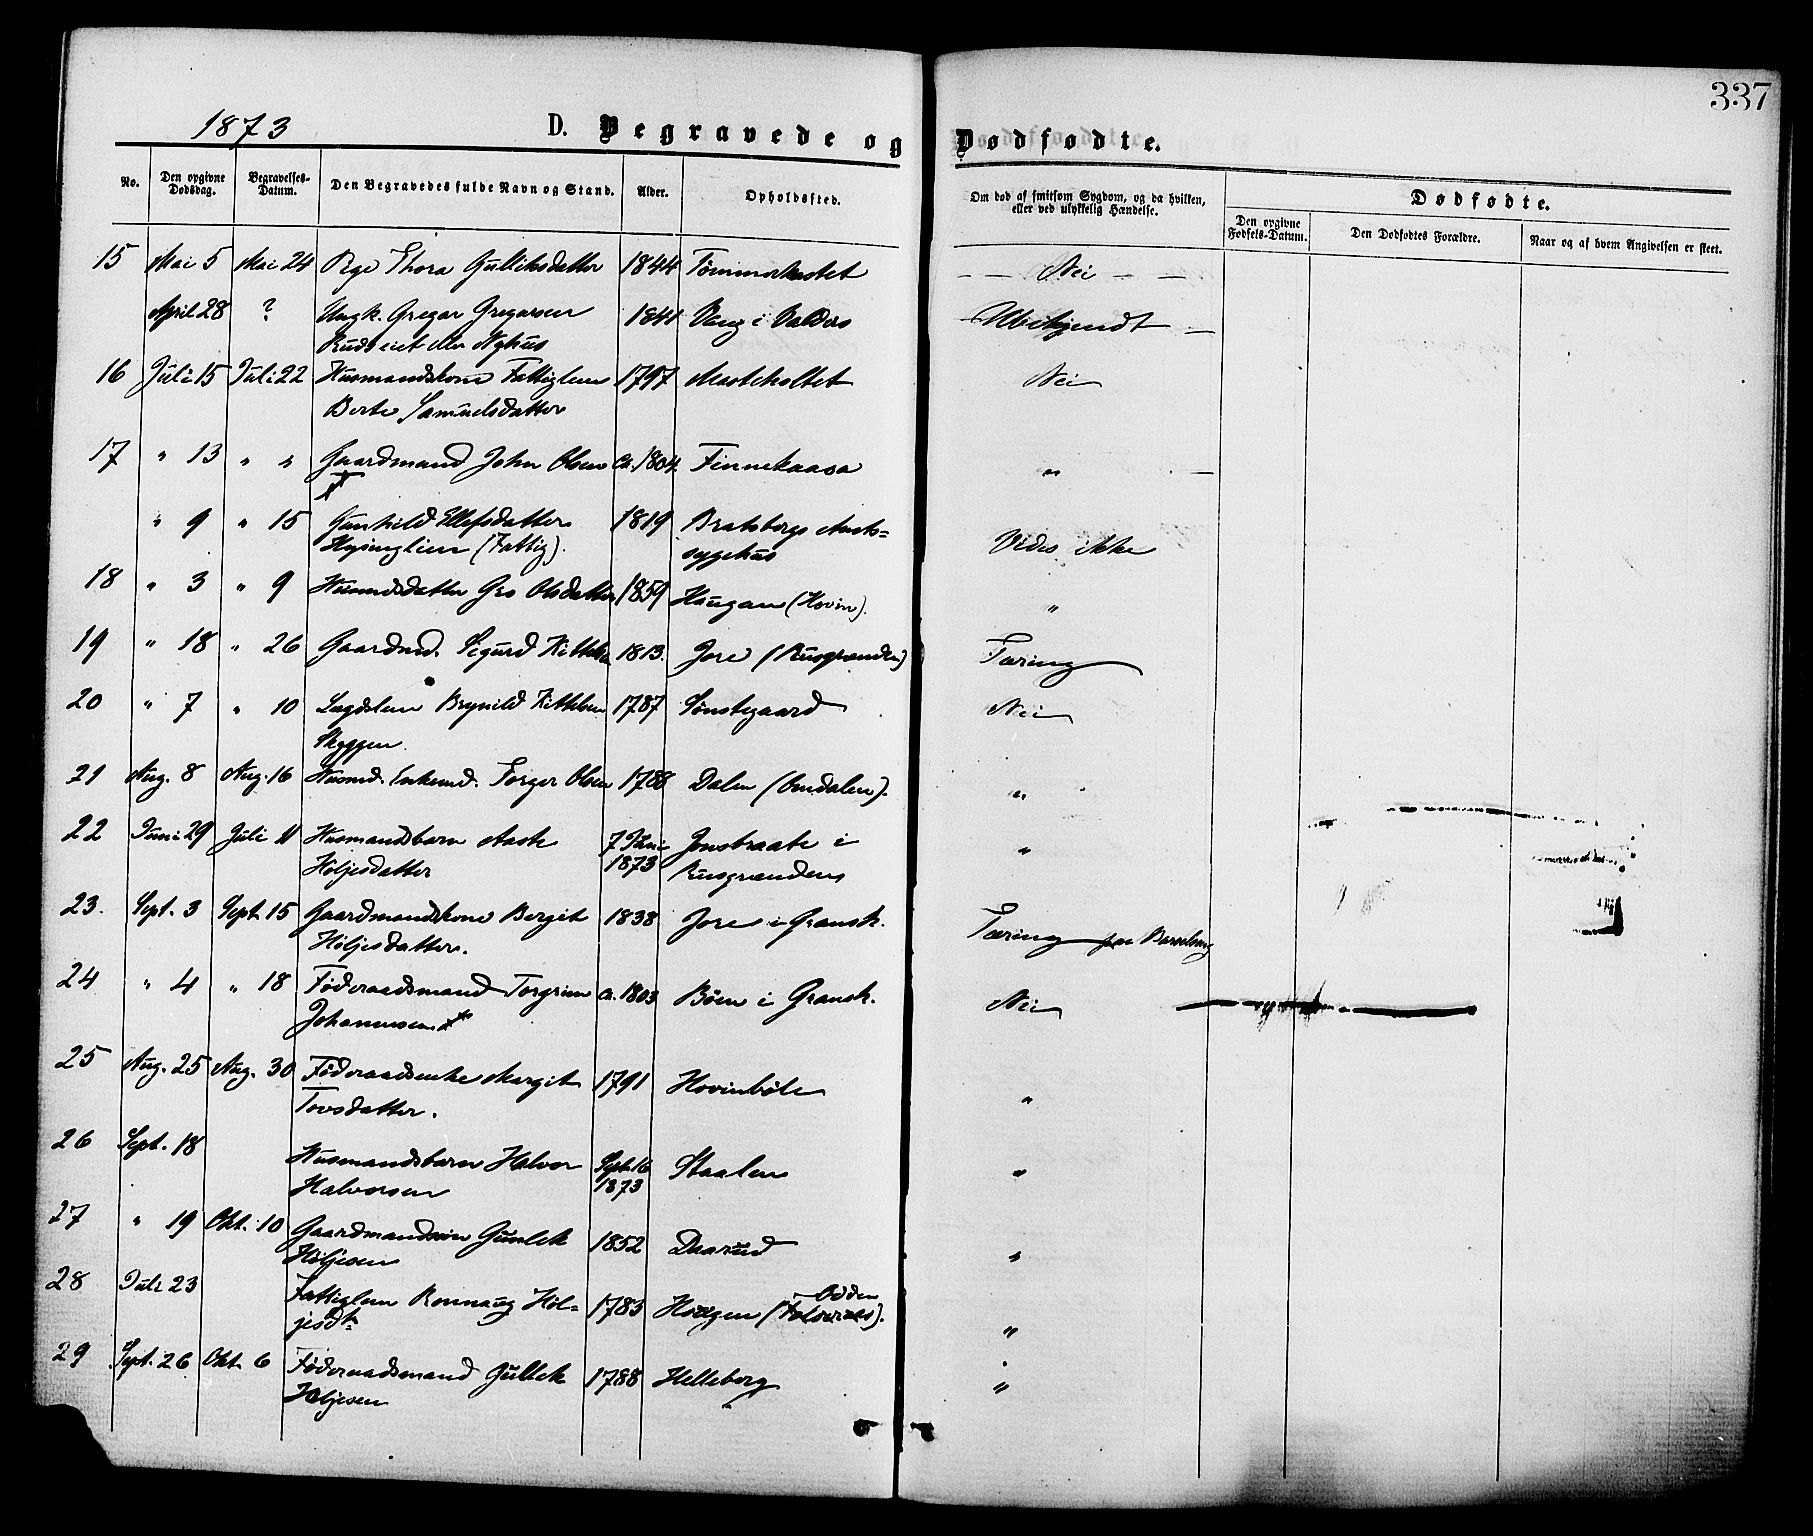 337
1873 D. Begravede og Dødfødte.
No. Den opgivne Dødsdag. Begravelses-Datum. Den Begravedes fulde Navn og Stand. Alder. Opholdssted. Om død af smitsom Sygdom, og da hvilken, eller ved ulykkelig Hændelse. Dødfødte.
Den opgivne Fødsels-Datum. Den Dødfødtes Forældre. Naar og af hvem Angivelsen er skeet.
15 Mai 5 Mai 24 Pige Thora Guliksdatter 1844 Nei
April 28 ? Ungk. Gregar Gregarsen 1841 Vang i Valders Ubekjendt
Rudseiet eller Nyhus
16 Juli 15 Juli 22 Husmandskone Fattiglem 1797 Masteholtet Nei
Berte Samuelsdatter
17 " 13 " " Gaardmand John Olsen ca. 1804. Finnekaasa "
" 9 " 15 Gunhild Ellefsdatter 1819 Bratsbergs Amts=
(Fattig). sygehus Vides ikke
18 " 3 " 9 Husmdsdatter Gro Olsdatter 1859 Haugan (Hovin). "
19 " 18 " 26 Gaardmd. Sigurd Kittilsen 1813. Jore (Rusgrænden) Tæring
20 " 7 " 10 Lægdslem Brynild Kittelsen 1787 Sønstegaard Nei
Skyggen
21 Aug. 8 Aug. 16 Husmd. Enkemd. Torger Olsen 1788 Dalen (Omdalen). "
22 Juni 29 Juli 11 Husmandsbarn Aaste 7 Juni i "
Høljesdatter 1873 Rusgrændens
23. Sept. 3 Sept. 15 Gaardmandskone Bergit 1838 Jore i Gransh. Tæring paa Barselseng
Høljesdatter.
24 " 4 " 18 Føderaadsmand Torgrim ca. 1803 Bøen i Gransh. Nei
Johannesen
25 Aug. 25 Aug. 30 Føderaadsenke Margit 1791 Hovinbøle "
Tovsdatter.
26 Sept. 18 Husmandsbarn Halvor Sept. 16 Staalen "
Halvorsen 1873
27 " 19 Okt. 10 Gaardmandssøn Gunlek 1852 Daarud "
Høljesen
28 Juli 23 Fattiglem Rønnaug Høl= 1783 Odden "
jesdtr
29 Sept. 26 Okt. 6 Føderaadsmand Gullek 1788 Helleberg "
Høljesen